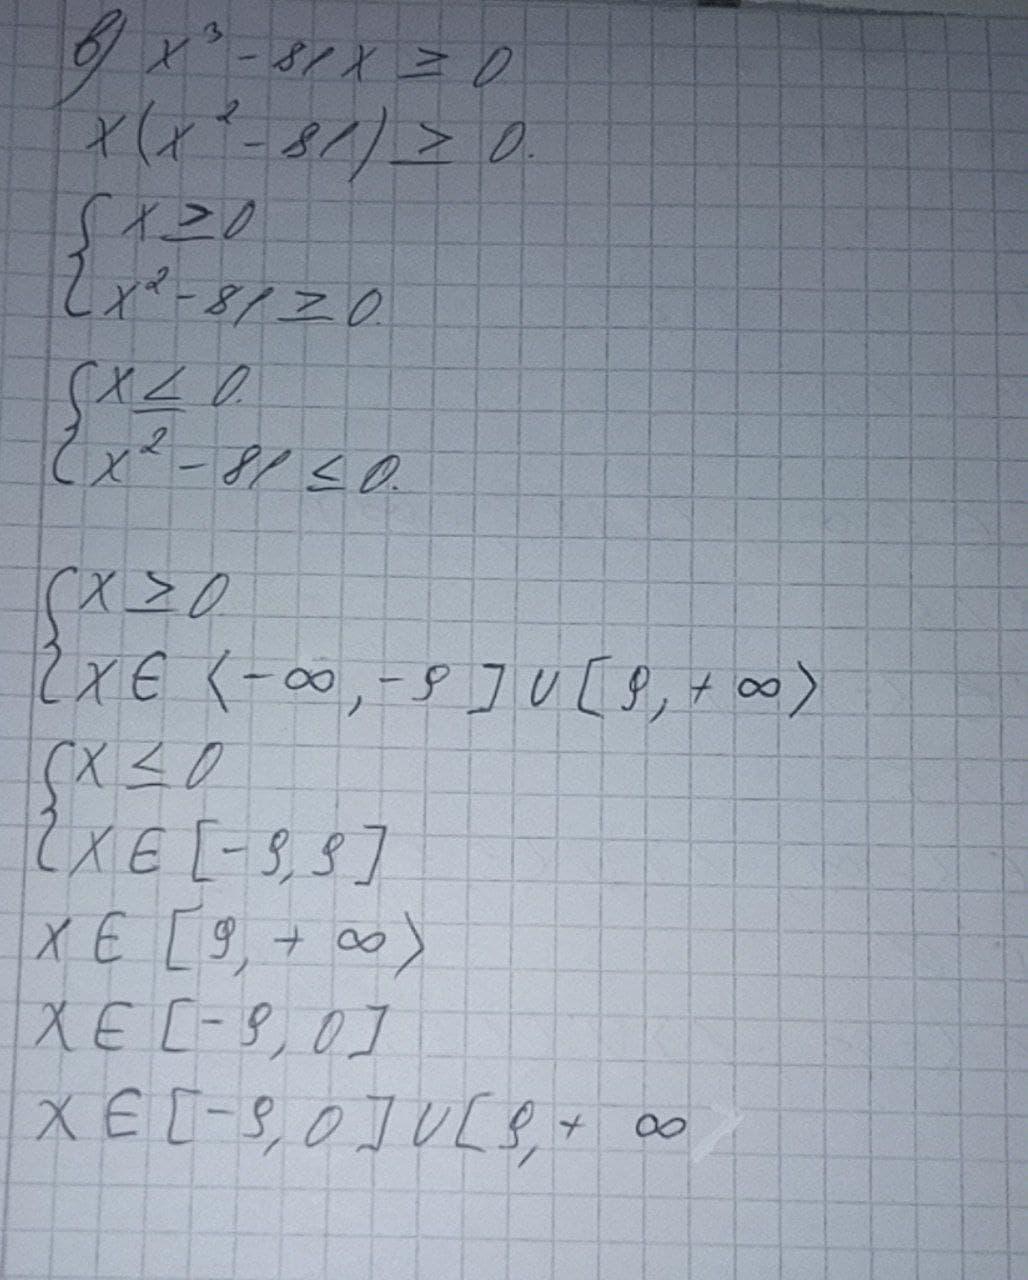 в) x³ - 81x ≥ 0
x(x² - 81) ≥ 0.
{ x ≥ 0
x² - 81 ≥ 0.
{ x ≤ 0.
x² - 81 ≤ 0.
{ x ≥ 0
x ∈ ⟨-∞, -9] ∪ [9, + ∞⟩
{ x ≤ 0
x ∈ [-9, 9]
x ∈ [9, + ∞⟩
x ∈ [-9, 0]
x ∈ [-9, 0] ∪ [9, + ∞